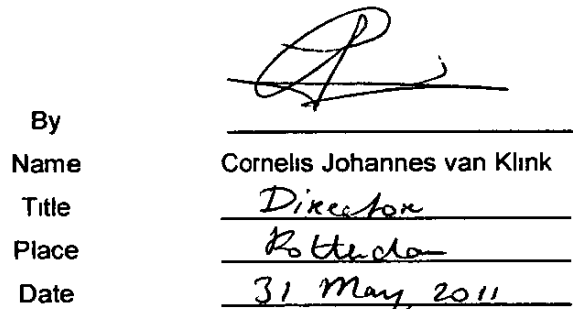 By
Name Cornelis Johannes van Klink
Title Director
Place Rotterdam
Date 31 May 2011